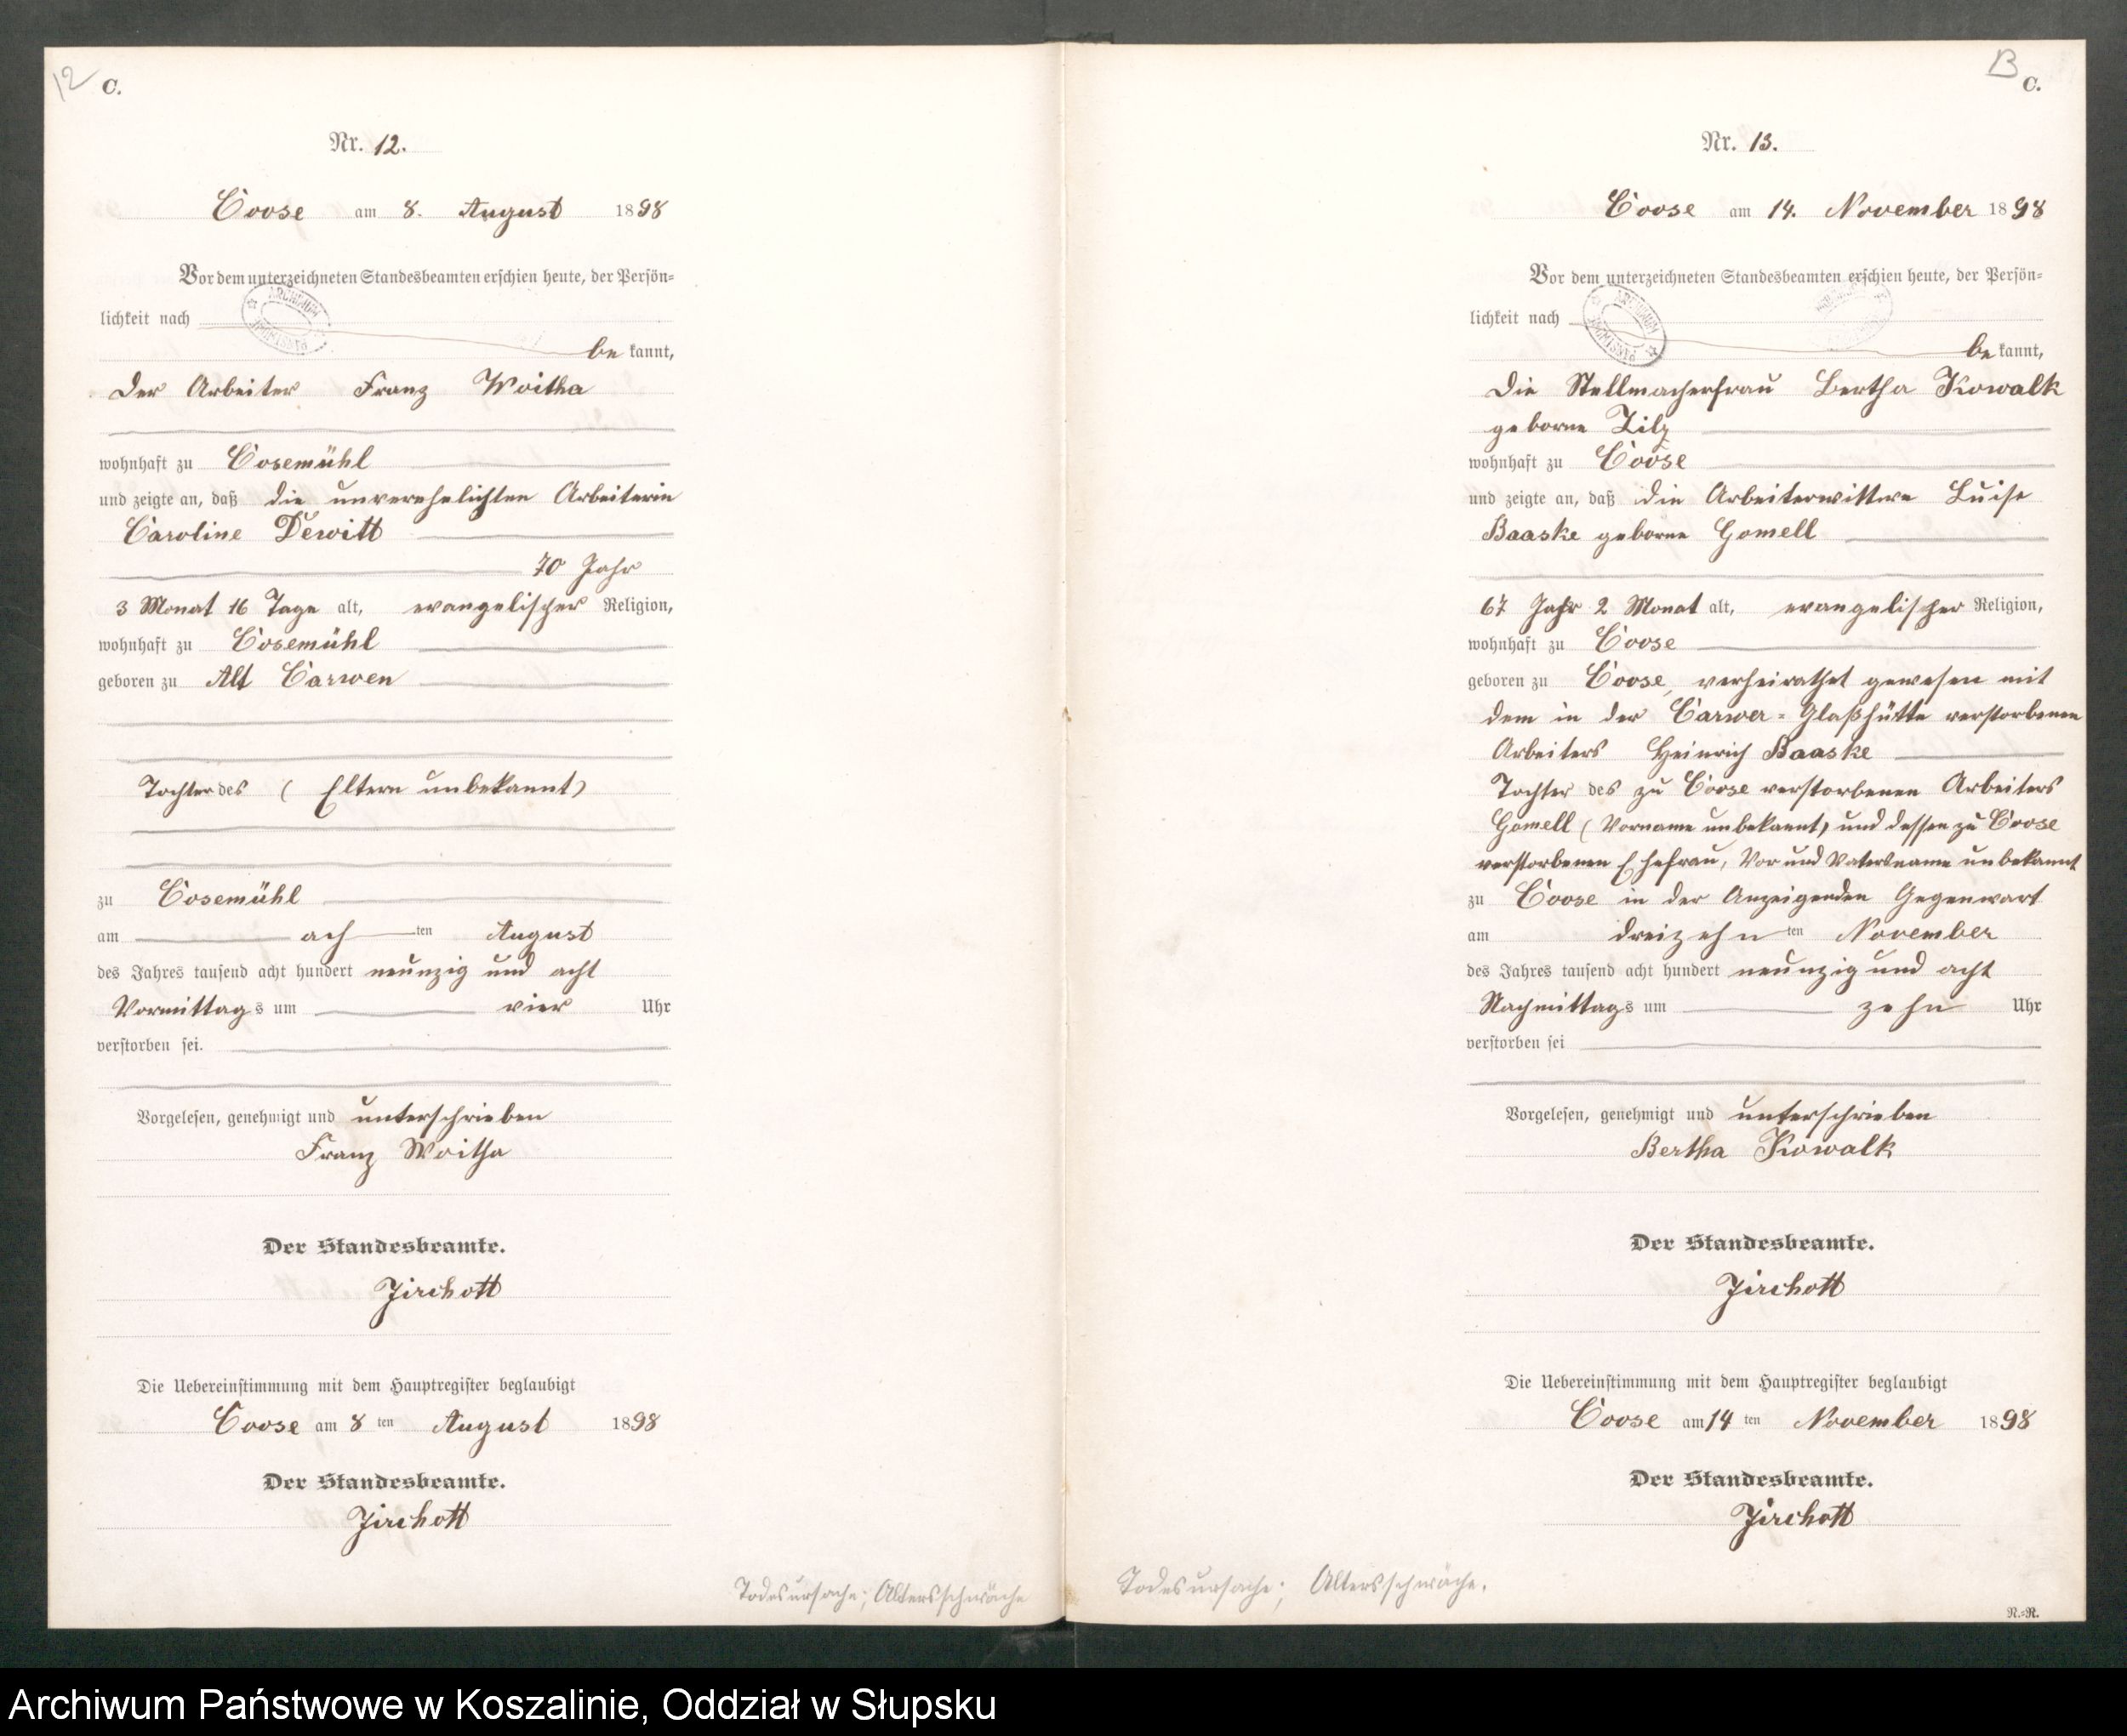 12 C.
Nr. 12.
Coose am 8. August 1898
Vor dem unterzeichneten Standesbeamten erschien heute, der Persön=
lichkeit nach
be kannt,
der Arbeiter Franz Woitha
wohnhaft zu Cosemühl
und zeigte an, daß die unverehelichten Arbeiterin
Caroline Dewitt
70 Jahr
3 Monat 16 Tage alt, evangelischer Religion,
wohnhaft zu Cosemühl
geboren zu Alt Carwen
Tochter des ( Eltern unbekannt)
zu Cosemühl
am ach ten August
des Jahres tausend acht hundert neunzig und acht
Vormittag s um vier Uhr
verstorben sei.
Vorgelesen, genehmigt und unterschrieben
Franz Woitha
Der Standesbeamte.
Jirchott
Die Uebereinstimmung mit dem Hauptregister beglaubigt
Coose am 8 ten August 1898
Der Standesbeamte.
Jirchott
Todesursache; Altersschwäche
13 C.
Nr. 13.
Coose am 14. November 1898
Vor dem unterzeichneten Standesbeamten erschien heute, der Persön=
lichkeit nach
be kannt,
die Stellmacherfrau Bertha Kowalk
geborne Zilz
wohnhaft zu Coose
und zeigte an, daß die Arbeiterwittwe Luise
Baaske geborne Gomell
67 Jahr 2 Monat alt, evangelischer Religion,
wohnhaft zu Coose
geboren zu Coose, verheirathet gewesen mit
dem in der Carwer=Glaßhütte verstorbenen
Arbeiters Heinrich Baaske
Tochter des zu Coose verstorbenen Arbeiters
Gomell (Vorname unbekannt) und dessen zu Coose
verstorbenen Ehefrau, Vor und Vatersname unbekannt
zu Coose in der Anzeigenden Gegenwart
am dreizehn ten November
des Jahres tausend acht hundert neunzig und acht
Nachmittag s um zehn Uhr
verstorben sei
Vorgelesen, genehmigt und unterschrieben
Bertha Kowalk
Der Standesbeamte.
Jirchott
Die Uebereinstimmung mit dem Hauptregister beglaubigt
Coose am 14 ten November 1898
Der Standesbeamte.
Jirchott
Todesursache; Altersschwäche.
N.=N.
Archiwum Państwowe w Koszalinie, Oddział w Słupsku